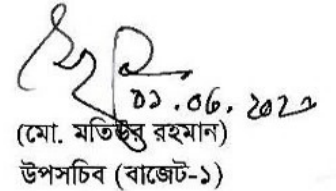 ০১.০৬.২০২১
(মো. মতিউর রহমান)
উপসচিব (বাজেট-১)